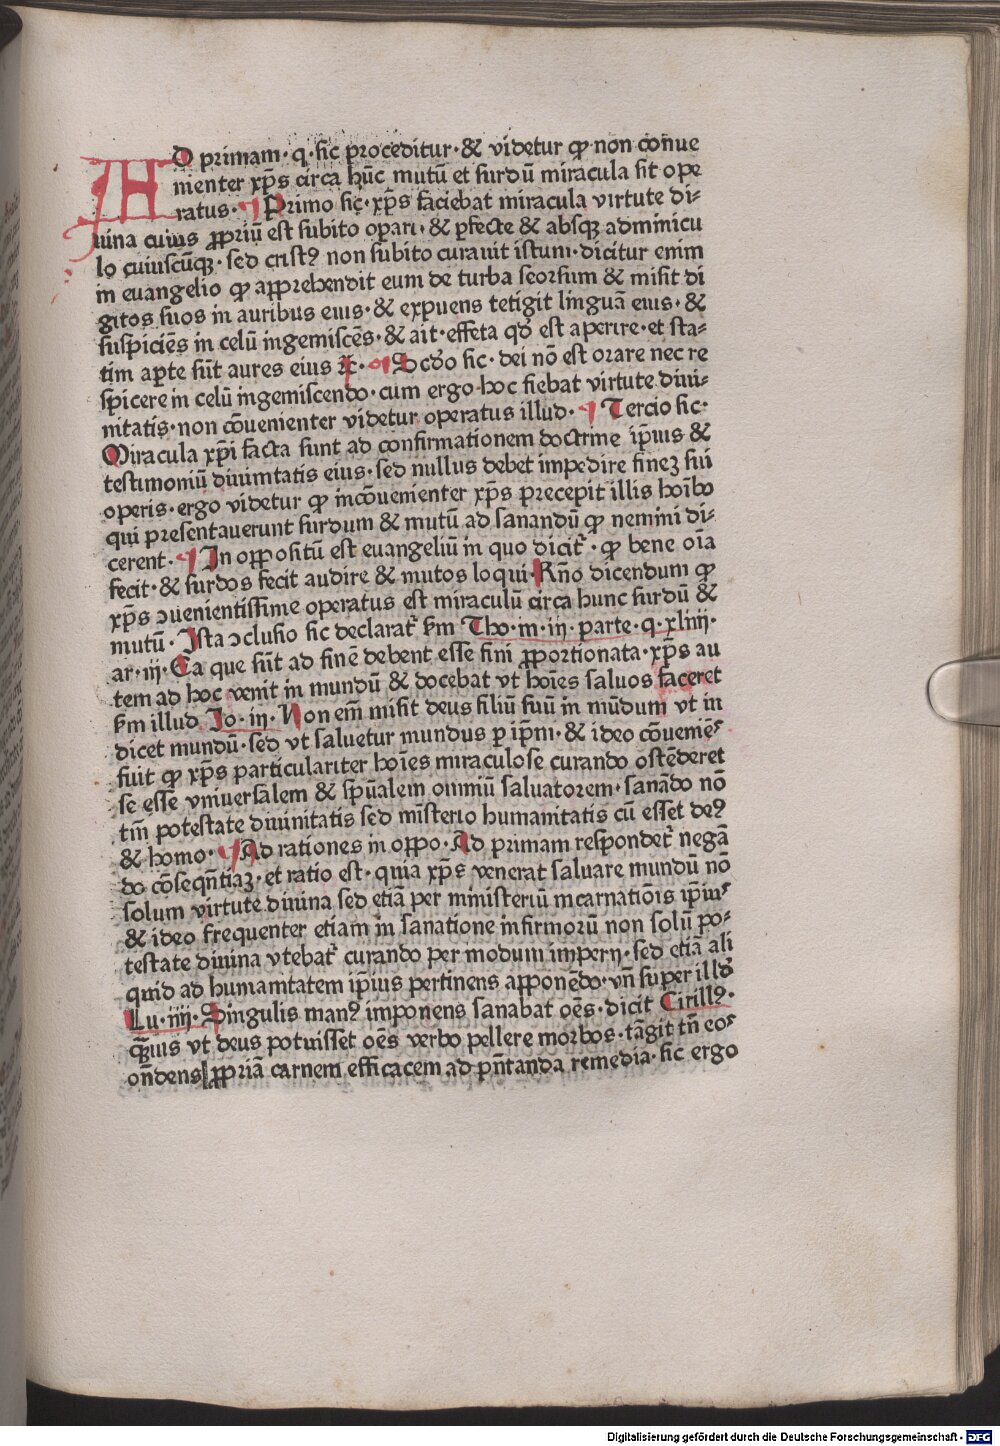 AD primam· q· sic proceditur· & videtur ꝙ non conue
nienter xp̄s circa hūc mutū et surdū miracula sit ope
ratus· ¶ Primo sic· xp̄s faciebat miracula virtute di⸗
uina cuius ꝓpriū est subito oꝑari· & ꝑfecte & absqꝫ adminicu
lo cuiuscūqꝫ· sed cristꝰ non subito curauit istum· dicitur enim
in euangelio ꝙ apprehendit eum de turba seorsum & misit di
gitos suos in auribus eius· & expuens tetigit linguā eius· &
suspiciēs in celū ingemiscēs· & ait· effeta qď est aperire· et sta⸗
tim aꝑte sūt aures eius ⁊c̄· ¶ Scďo sic· dei nō est orare nec re
spicere in celū ingemiscendo· cum ergo hoc fiebat virtute diui⸗
nitatis· non cōuenienter videtur operatus illud· ¶ Tercio sic·
Miracula xp̄i facta sunt ad confirmationem doctrine ip̄ius &
testimoniū diuinitatis eius· sed nullus debet impedire fineꝫ sui
operis· ergo videtur ꝙ incōuenienter xp̄s precepit illis hoı̄bo
qui presentauerunt surdum & mutū ad sanandū ꝙ nemini di⸗
cerent· ¶ In oppositū est euangeliū in quo dicit᷑· ꝙ bene oı̄a
fecit· & surdos fecit audire & mutos loqui· Rn̄o dicendum ꝙ
xp̄s ꝯuenientissime operatus est miraculū circa hunc surdū &
mutū· Ista ꝯclusio sic declarat᷑ ẜm Tho· in· iij· parte· q· xliiij·
ar· iij· Ea que sūt ad finē debent esse fini ꝓportionata· xp̄s au
tem ad hoc venit in mundū & docebat vt hoı̄es saluos faceret
ẜm illud Jo· iij· Non em̄ misit deus filiū suū in mūdum vt iu
dicet mundū· sed vt saluetur mundus ꝑ ip̄m· & ideo cōuenieꝰ
fuit ꝙ xp̄s particulariter hoı̄es miraculose curando ostēderet
se esse vniuersalem & spūalem omniū saluatorem· sanādo nō
tm̄ potestate diuinitatis sed mı̄sterio humanitatis cū esset deꝰ
& homo· ¶ Ad rationes in oppo· Ad primam respondet᷑ negā
do cōseqn̄tiaꝫ· et ratio est· quia xp̄s venerat saluare mundū nō
solum virtute diuina sed etiā per ministeriū incarnatiōıs ip̄iuꝰ
& ideo frequenter etiam in sanatione infirmorū non solū po⸗
testate diuina vtebat᷑ curando per modum imperij· sed etiā ali
quid ad humanitatem ip̄ius pertinens apponēdo· vn̄ super illď
Lu· iiij· Singulis manꝰ imponens sanabat oēs· dicit Cirillꝰ·
qꝫuis vt deus potuisset oēs verbo pellere morbos· tāgit tn̄ eoꝰ
on̄dens ꝓpriā carnem efficacem ad pn̄tanda remedia· sic ergo
Digitalisierung gefördert durch die Deutsche Forschungsgemeinschaft - DFG